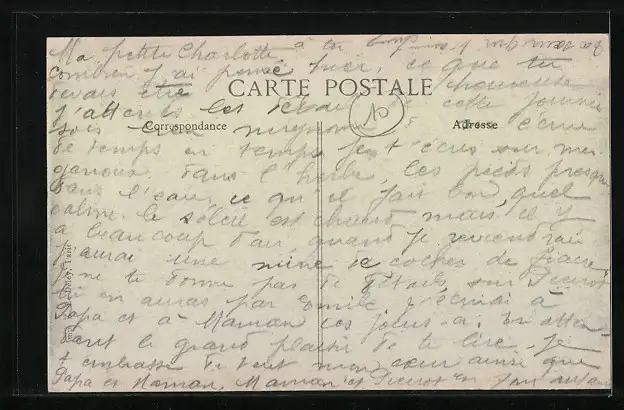 Ma petite Charlotte, à toi
combien j'ai pensé hier, ce que tu
devais être heureuse
CARTE POSTALE
j'attends les détails de cette journée
10
Correspondance
Adresse
sois bien mignonne
de temps en temps je t'écris sur mes
genoux, dans l'herbe, les pieds presque
dans l'eau, ce qu'il fait bon, quel
calme. le soleil est chaud mais il y
a beaucoup d'air, quand je reviendrai
j'aurai une mine de cocher de fiacre,
je ne te donne pas de détails sur Pierrot
tu en auras par Emile, j'écrirai à
Papa et à Maman ces jours-ci. En atten-
dant le grand plaisir de te lire. Je
t'embrasse de tout mon cœur ainsi que
Papa et Maman. Maman et Pierrot en font autant